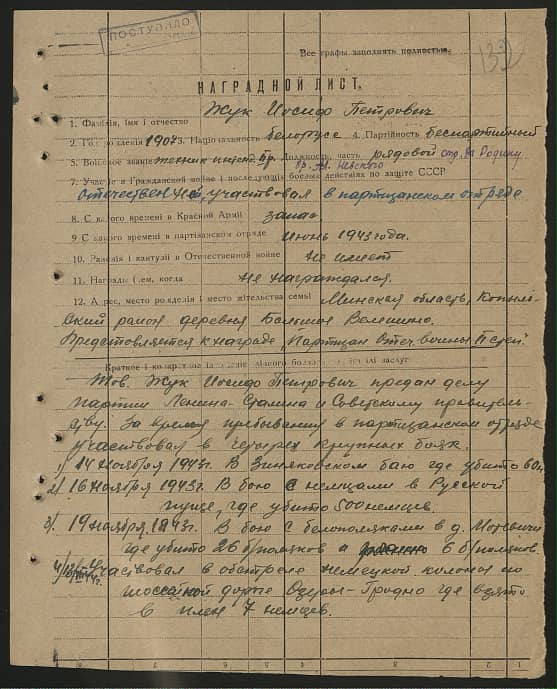 ПОСТУПИЛО
132
Все графы заполнять полностью.
НАГРАДНОЙ ЛИСТ.
1. Фамілія, імя і отчество Жук Иосиф Петрович
2. Год рождения 1907 3. Національность белорусс 4. Партійность беспартийный
5. Воінское званіе Должность, часть рядовой отр. За Родину
бр. Ал. Невского
7. Участіе в Гражданской войне і последующіх боевых действіях по защіте СССР
отечествен участвовал в партизанском отряде
8. С какого времені в Красной Арміі запас
9 С какого времені в партізанском отряде июнь 1943 года.
10. Раненія і контузіі в Отечественной войне Не имеет
11. Награжден, когда Не награждался.
12. Адрес, место рожденія і место жітельства семьі Минская область, Копыль-
ский район деревня Большое
Представляется к награде „Партизан Отеч. войны
Краткое і конкретное ізложеніе лічного боевого ілі заслуг
Тов. Жук Иосиф Петрович предан делу
партии Ленина-Сталина и Советскому правитель-
ству. За время пребывания в партизанском отряде
участвовал в четырех крупных боях.
1) 14 ноября 1943 г. В бою где убито
2) 16 ноября 1943 г. В бою с немцами в Русской
пуще, где убито 500 немцев.
3) 19 ноября, 1943 г. В бою с белополяками в д. Мотевичи
где убито 26 б/поляков а 6 б/поляков.
4) Участвовал в обстреле немецкой колоны по
шоссейной дороге Озеры-Гродно где взято
в плен 7 немцев.